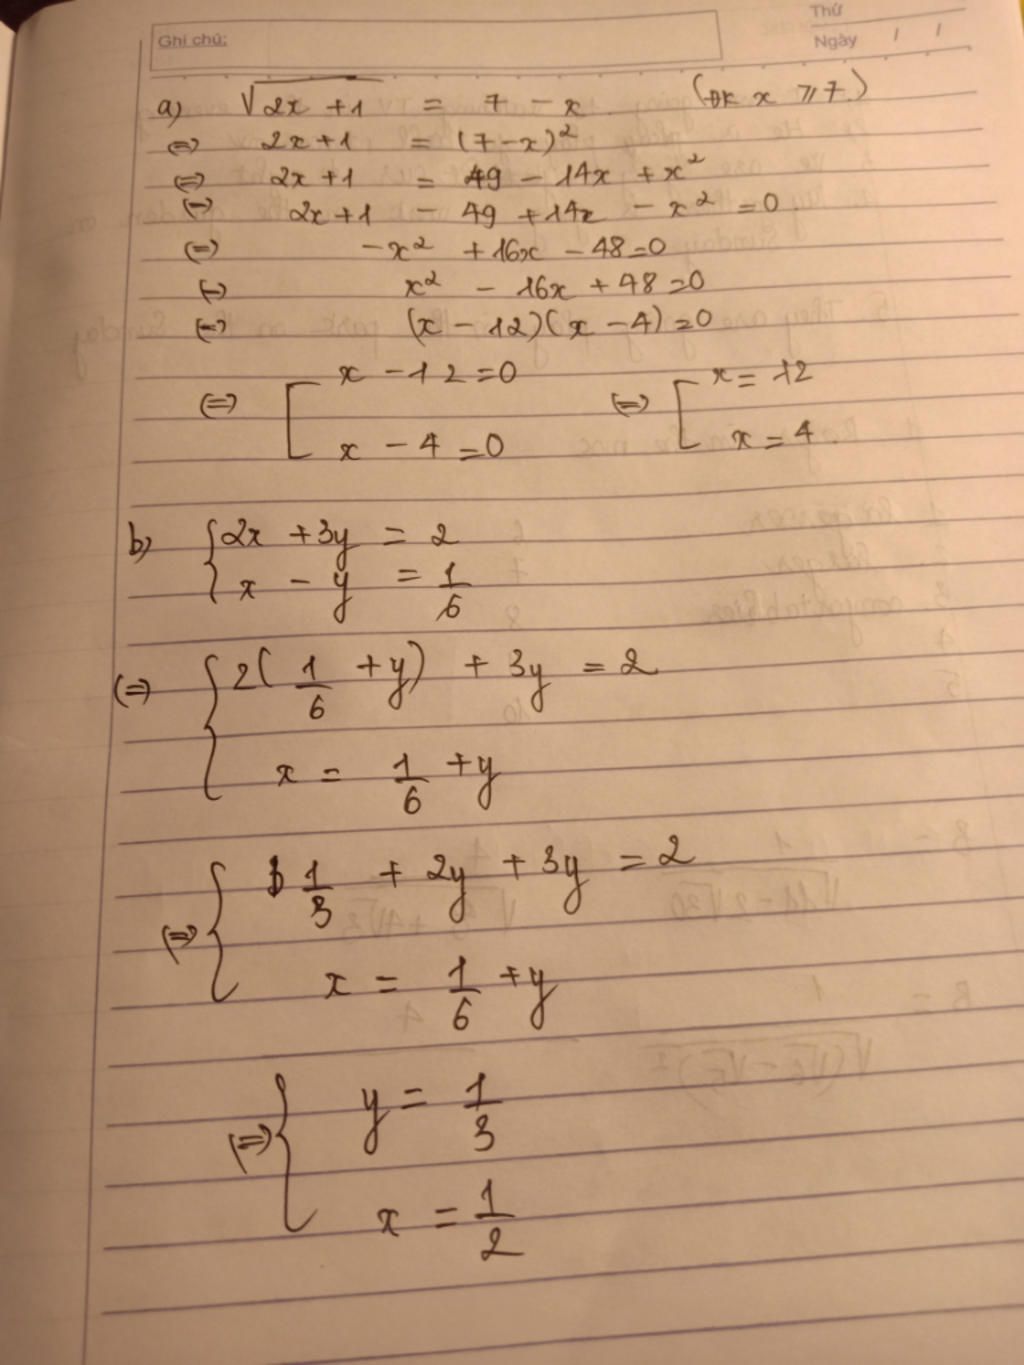 Thứ
Ghi chú:
Ngày / /
a) √(2x + 1) = 7 - x (ĐK x ⩾ 7.)
(=) 2x + 1 = (7 - x)²
(=) 2x + 1 = 49 - 14x + x²
(=) 2x + 1 - 49 + 14x - x² = 0
(=) -x² + 16x - 48 = 0
(=) x² - 16x + 48 = 0
(=) (x - 12)(x - 4) = 0
(=) [ x - 12 = 0 (=) [ x = 12
x - 4 = 0 x = 4
b) { 2x + 3y = 2
x - y = 1/6
(=) { 2(1/6 + y) + 3y = 2
x = 1/6 + y
(=) { 1/3 + 2y + 3y = 2
x = 1/6 + y
(=) { y = 1/3
x = 1/2